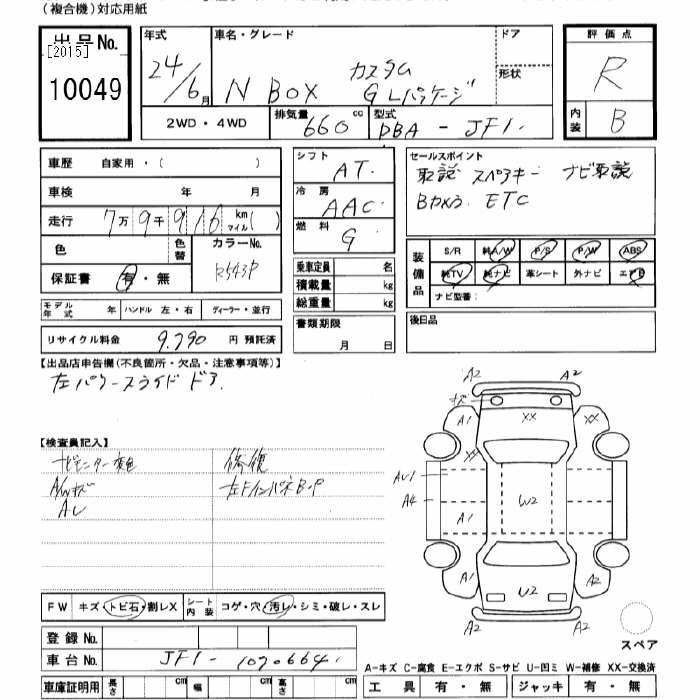 （複合機）対応用紙
出品No.
[2015]
10049
年式
24/6月
車名・グレード
N BOX カスタム
G Lパッケージ
ドア
形状
評価点
R
内装 B
2WD・4WD
排気量 660 cc
型式 DBA - JF1
車歴 自家用・（ ）
車検 年 月
走行 7万9千916 km マイル( )
色
色替
カラーNo.
R543P
保証書 有・無
シフト AT
冷房 AAC
燃料 G
乗車定員 名
積載量 kg
総重量 kg
セールスポイント
取説 スペアキー ナビ取説
Bカメラ ETC
装備品
S/R 純A/W P/S P/W ABS
純TV 純ナビ 革シート 外ナビ エアB
ナビ型番：
モデル年式 年 ハンドル 左・右 ディーラー・並行
リサイクル料金 9,790 円 預託済
書類期限
月 日
後日品
【出品店申告欄(不良箇所・欠品・注意事項等)】
左パワースライドドア
【検査員記入】
ナビモニター変色
A/Wキズ
AU
修復
左FインパネB・P
A2 A2
キズ
A1 XX XX
XX
AU1
A4
A1 W2
A1 U2 A2
A2 A2
スペア
FW キズ・トビ石・割レX
シート内装 コゲ・穴・汚レ・シミ・破レ・スレ
登録No.
車台No. JF1-1070664
車庫証明用 長さ cm 幅 cm 高さ cm
A-キズ C-腐食 E-エクボ S-サビ U-凹ミ W-補修 XX-交換済
工具 有・無 ジャッキ 有・無